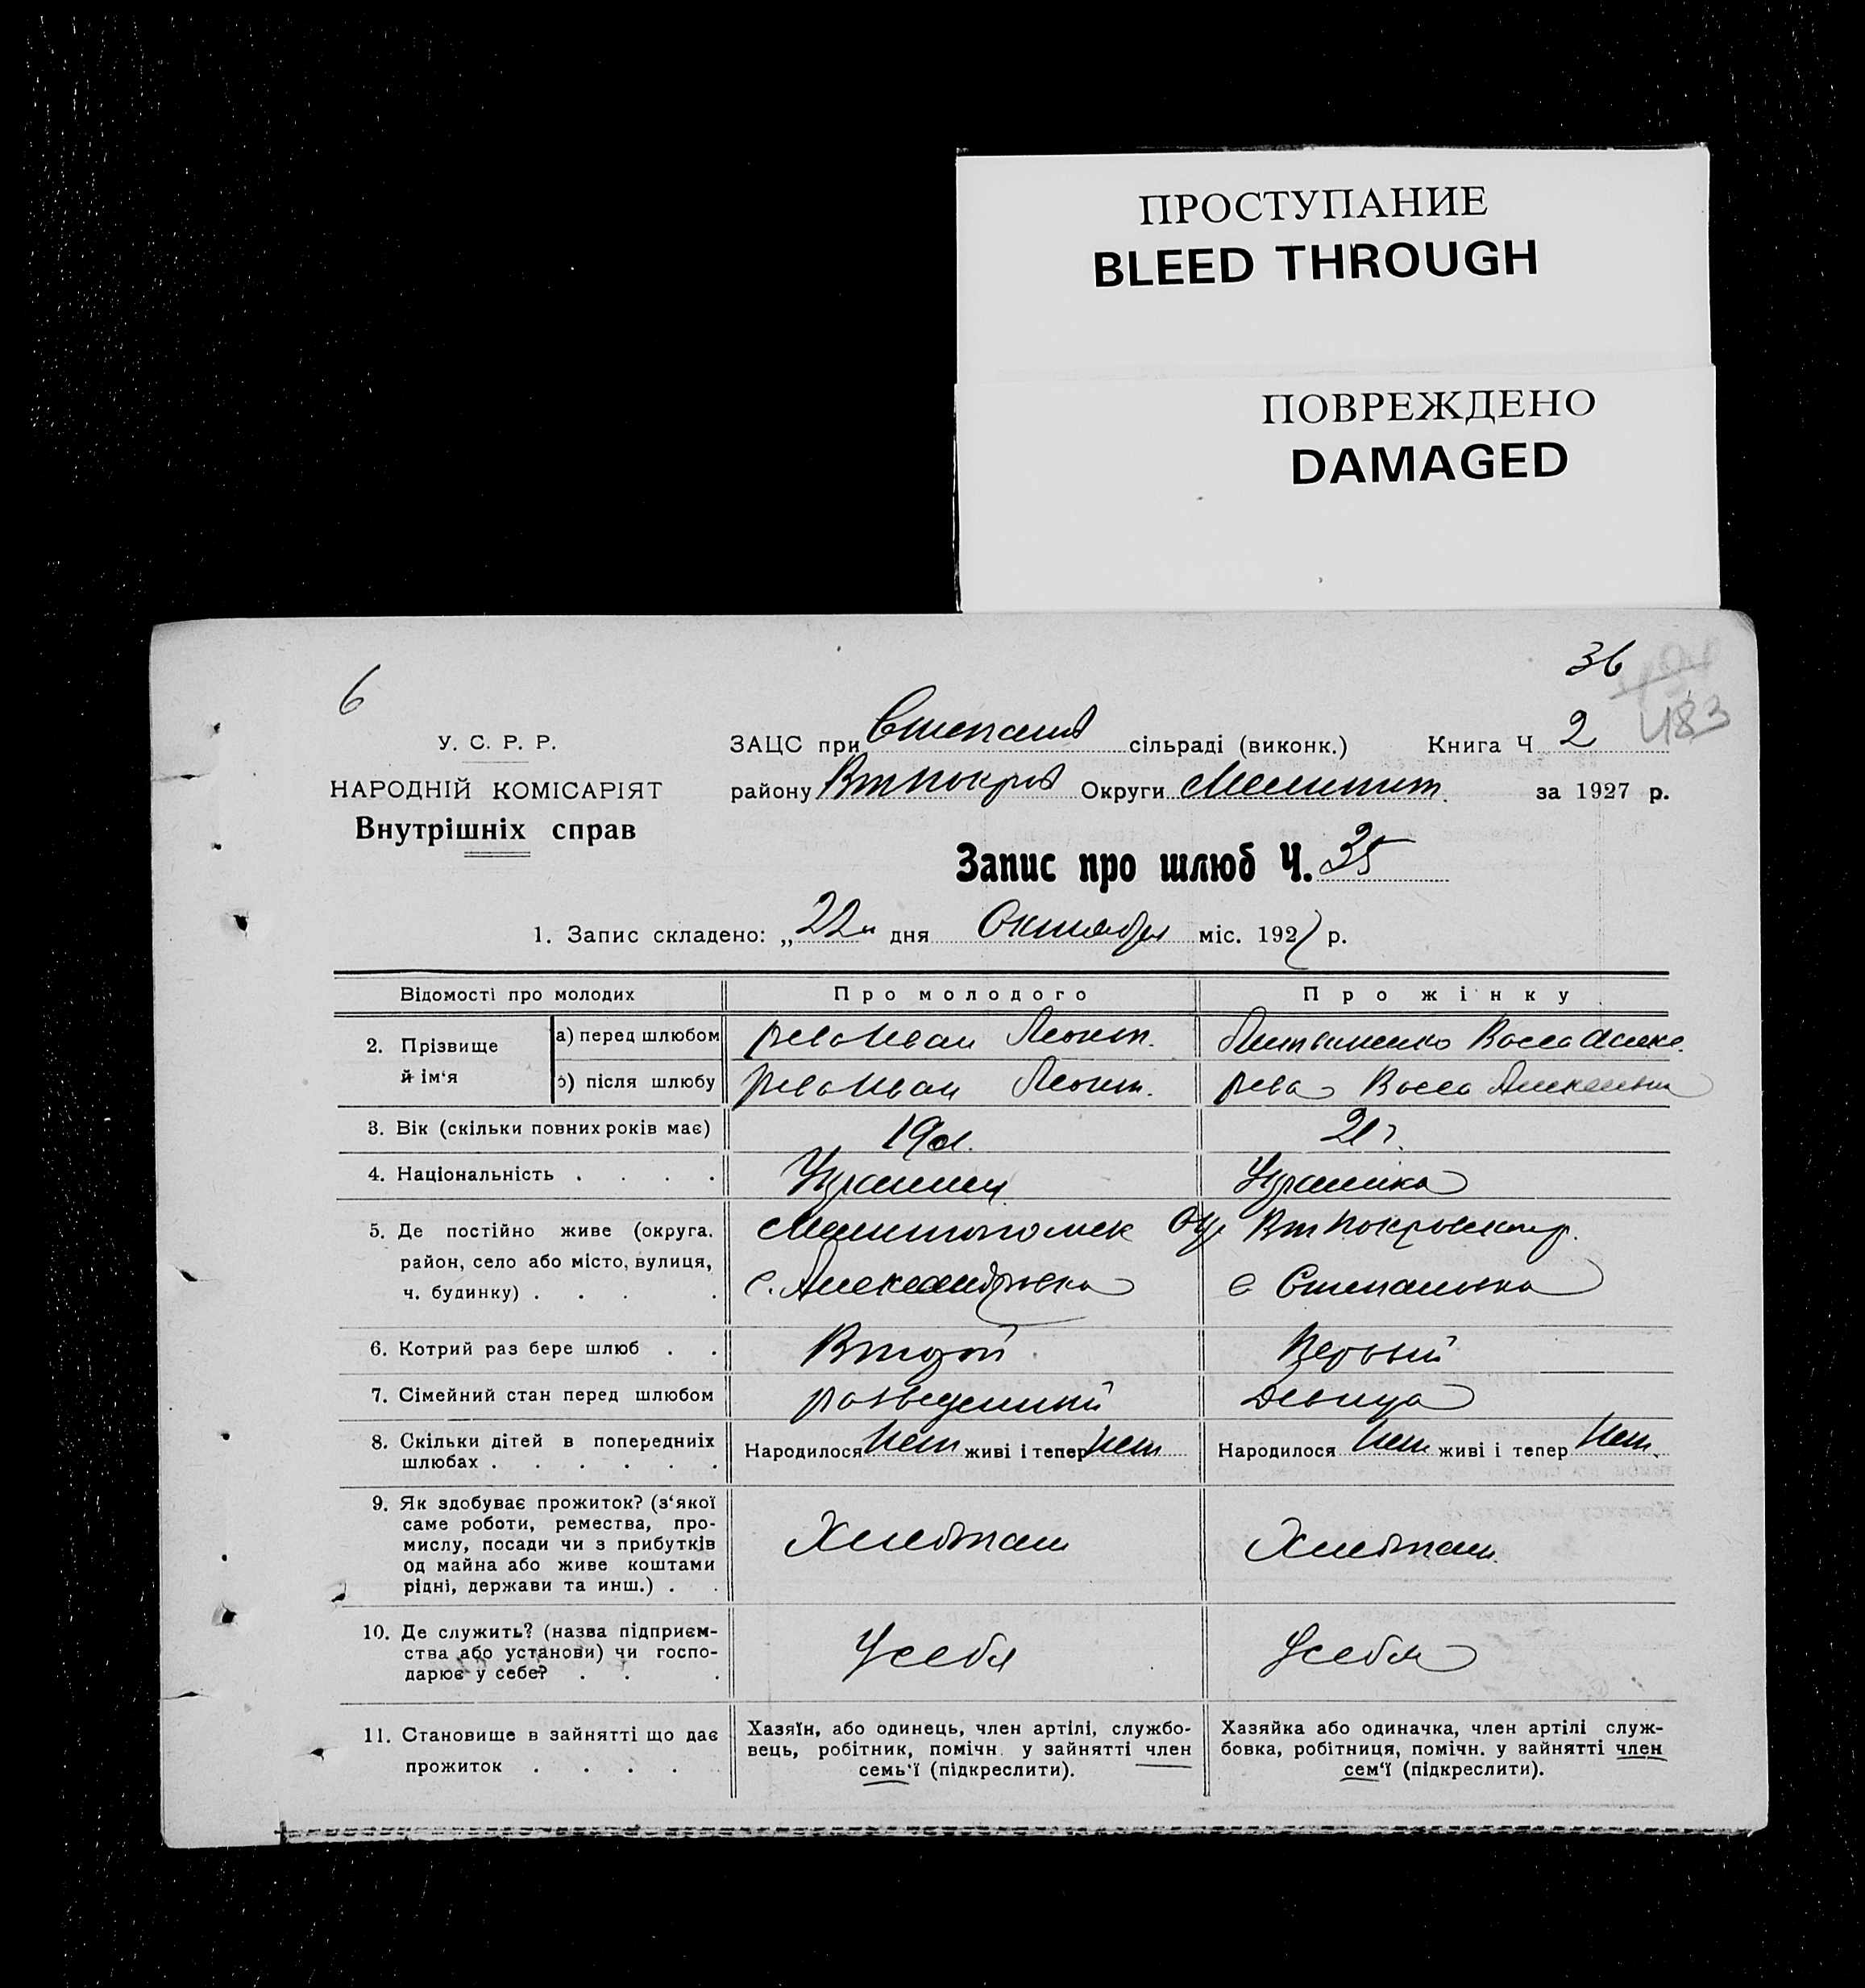 ПРОСТУПАНИЕ
BLEED THROUGH
ПОВРЕЖДЕНО
DAMAGED
36
6
183
У. С. Р. Р.
НАРОДНІЙ КОМІСАРІЯТ
Внутрішніх справ
ЗАЦС при Степанов сільраді (виконк.) Книга Ч 2
району Втпокров Округи Мелитип. за 1927 р.
Запис про шлюб Ч. 35
1. Запис складено: „22" дня Октября міс. 1927 р.
Відомості про молодих Про молодого Про жінку
2. Прізвище й ім'я
а) перед шлюбом Рева Иван Леонт. Васса Алекс.
б) після шлюбу Рева Иван Леонт. Рева Васса
3. Вік (скільки повних років має) 19 л. 21 г.
4. Національність . . . . Украинец Украинка
5. Де постійно живе (округа. Мелитопольск Окр Втпокровск р.
район, село або місто, вулиця, с. Александровка с Степановка
ч. будинку) . . . .
6. Котрий раз бере шлюб . . Второй Первый
7. Сімейний стан перед шлюбом разведенный Девица
8. Скільки дітей в попередниіх Народилося Нет живі і тепер Нет Народилося Нет живі і тепер Нет.
шлюбах . . . . . .
9. Як здобуває прожиток? (з'якої
саме роботи, ремества, про-
мислу, посади чи з прибутків Хлебпаш Хлебпаш.
од майна або живе коштами
рідні, держави та инш.) . .
10. Де служить? (назва підприєм-
ства або установи) чи госпо- У себя У себя
дарює у себе? . . .
11. Становище в зайнятті що дає
прожиток . . . .
Хазяїн, або одинець, член артілі, службо-
вець, робітник, помічн. у зайнятті член
семь'ї (підкреслити).
Хазяйка або одиначка, член артілі служ-
бовка, робітниця, помічн. у зайнятті член
сем'ї (підкреслити).